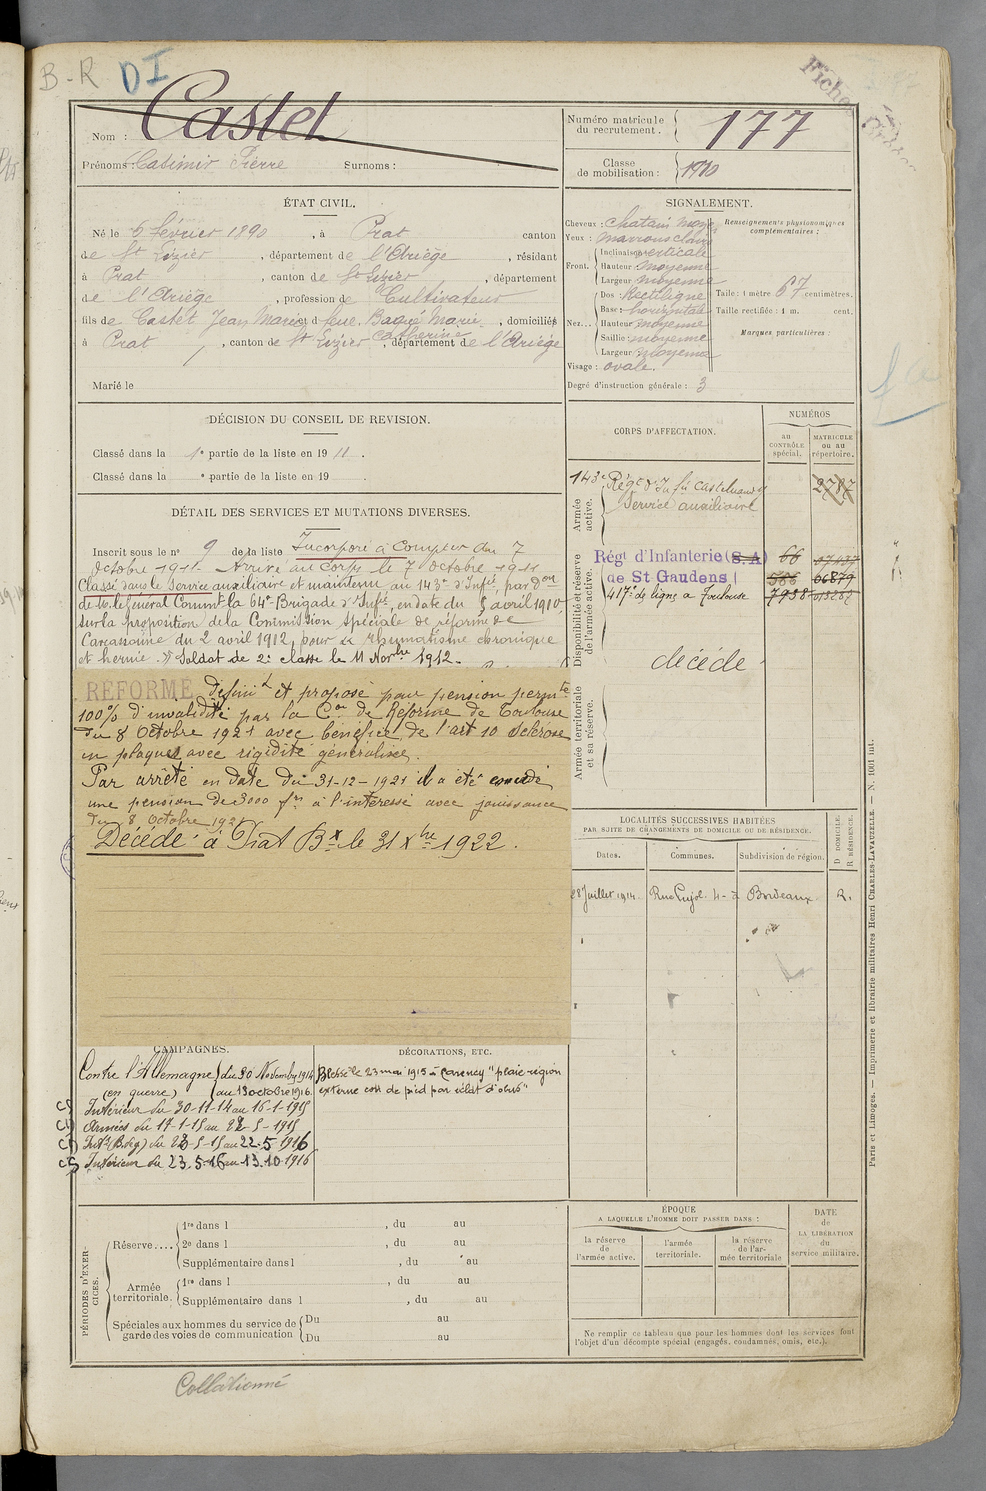 B-R DI
Fiche
Nom : Castet
Prénoms : Casimir Pierre Surnoms :
Numéro matricule du recrutement. 177
Classe de mobilisation : 1910
ÉTAT CIVIL.
Né le 6 Février 1890, à Prat canton
de St Lizier, département de l'Ariège, résidant
à Prat, canton de St Lizier, département
de l'Ariège, profession de Cultivateur
fils de Castet Jean Marie et d feue Bagué Marie Catherine, domiciliés
à Prat, canton de St Lizier, département de l'Ariège
Marié le
SIGNALEMENT.
Cheveux : chatain moy
Yeux : marrons clairs
Front. Inclinaison verticale
Hauteur moyenne
Largeur moyenne
Nez... Dos : Rectiligne
Base : horizontale
Hauteur moyenne
Saillie : moyenne
Largeur moyenne
Visage : ovale.
Degré d'instruction générale : 3
Renseignements physionomiques complémentaires :
Taille : 1 mètre 67 centimètres.
Taille rectifiée : 1 m. cent.
Marques particulières :
DÉCISION DU CONSEIL DE REVISION.
Classé dans la 1e partie de la liste en 1911.
Classé dans la e partie de la liste en 19 .
DÉTAIL DES SERVICES ET MUTATIONS DIVERSES.
Inscrit sous le no 9 de la liste Incorporé à compter du 7
Octobre 1911. Arrivé au Corps le 7 Octobre 1911
Classé dans le Service auxiliaire et maintenu au 143e d'Infie, par Don
de M. le Général Commt la 64e Brigade d'Infie, en date du 5 avril 1912
sur la proposition de la Commission spéciale de réforme de
Carcassonne du 2 avril 1912, pour rhumatisme chronique
et hernie. Soldat de 2e classe le 11 Novbre 1912.
RÉFORMÉ Définit et proposé pour pension permte
100% d'invalidité par la Con de Réforme de Toulouse
du 8 Octobre 1921 avec bénéfice de l'art 10 Sclérose
en plaques avec rigidité généralisée.
Par arrêté en date du 31-12-1921 il a été concédé
une pension de 3000 frs à l'intéressé avec jouissance
du 8 Octobre 1921
Décédé à Prat Bx le 31 Xbre 1922.
CORPS D'AFFECTATION.
NUMÉROS
au CONTRÔLE spécial.
MATRICULE ou au répertoire.
Armée active.
143e Régt d'Infie Castelnaudary 2787
Service auxiliaire
Disponibilité et réserve de l'armée active.
Régt d'Infanterie (S.A) 66
de St Gaudens 586 06879
417e de ligne à Toulouse 7938
décédé
Armée territoriale et sa réserve.
LOCALITÉS SUCCESSIVES HABITÉES
PAR SUITE DE CHANGEMENTS DE DOMICILE OU DE RÉSIDENCE.
Dates. Communes. Subdivision de région. D DOMICILE. R RÉSIDENCE.
28 Juillet 1914. Rue Pujol. 4- Bordeaux. R.
CAMPAGNES.
Contre l'Allemagne du 30 Novemb 1914
(en guerre) au 13 octobre 1916.
CS Intérieur du 30-11-14 au 16-1-1915
CD Armées du 17-1-15 au 22-5-1915
CS Intr (B. deg) du 23-5-15 au 22-5-1916
CS Intérieur du 23.5.16 au 13.10.1916
DÉCORATIONS, ETC.
Blessé le 23 mai 1915 à Carency "plaie région
externe cou de pied par éclat d'obus"
PÉRIODES D'EXERCICES.
Réserve.... 1re dans l , du au
2e dans l , du au
Supplémentaire dans l , du au
Armée territoriale. 1re dans l , du au
Supplémentaire dans l , du au
Spéciales aux hommes du service de garde des voies de communication Du au
Du au
ÉPOQUE
A LAQUELLE L'HOMME DOIT PASSER DANS :
la réserve de l'armée active.
l'armée territoriale.
la réserve de l'armée territoriale
DATE de LA LIBÉRATION du service militaire.
Ne remplir ce tableau que pour les hommes dont les services font
l'objet d'un décompte spécial (engagés, condamnés, omis, etc.).
Paris et Limoges. — Imprimerie et librairie militaires Henri CHARLES-LAVAUZELLE. — N. 1001 int.
Collationné